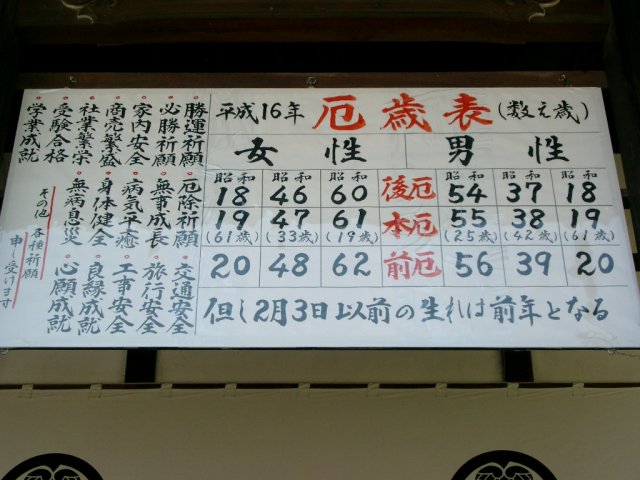 平成16年 厄歳表(数え歳)
女性 男性
昭和 昭和 昭和 後厄 昭和 昭和 昭和
18 46 60 54 37 18
19 47 61 本厄 55 38 19
(61歳) (33歳) (19歳) (25歳) (42歳) (61歳)
20 48 62 前厄 56 39 20
但し2月3日以前の生れは前年となる
勝運祈願 厄除祈願 交通安全
必勝祈願 無事成長 旅行安全
家内安全 病気平癒 工事安全
商売繁盛 身体健全 良縁成就
社業繁栄 無病息災 心願成就
受験合格
学業成就
その他 各種祈願
申し受けます